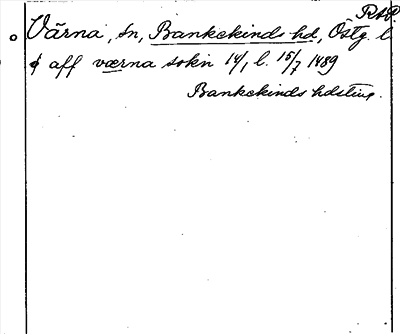 RAP.
Värna, sn, Bankekinds hd, Östg. l
¢ aff værna sokn 14/1 l. 15/7 1489
Bankekinds hdsting.